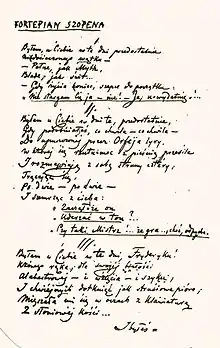 FORTEPIAN SZOPENA
I.
Byłem u Ciebie w te dni przedostatnie
Niedocieczonego wątku –
– Pełne, jak Myth,
Blade, jak świt...
– Gdy życia koniec szepce do początku:
„Nie stargam Cię ja – nie! – Ja, uwydatnię!..."
II.
Byłem u Ciebie w dni te, przedostatnie,
Gdy podobniałeś, co chwila – co chwila –
Do upuszczonej przez Orfeja liry,
W której się rzutu-moc z pieśnią przesila
I rozmawiają z sobą struny cztéry,
Trącając się,
Po dwie – po dwie –
I szemrząc z cicha:
„Zacząłże on
„Uderzać w ton?...
„Czy taki Mistrz!... że gra... choć, odpycha?..
III.
Byłem u Ciebie w te dni, Fryderyku!
Którego ręka, dla swojej białości
Alabastrowej – i wzięcia – i szyku,
I chwiejnych dotknięć jak strusiowe pióro,
Mięszała mi się w oczach z klawiaturą
Z słoniowej kości...
I byłeś